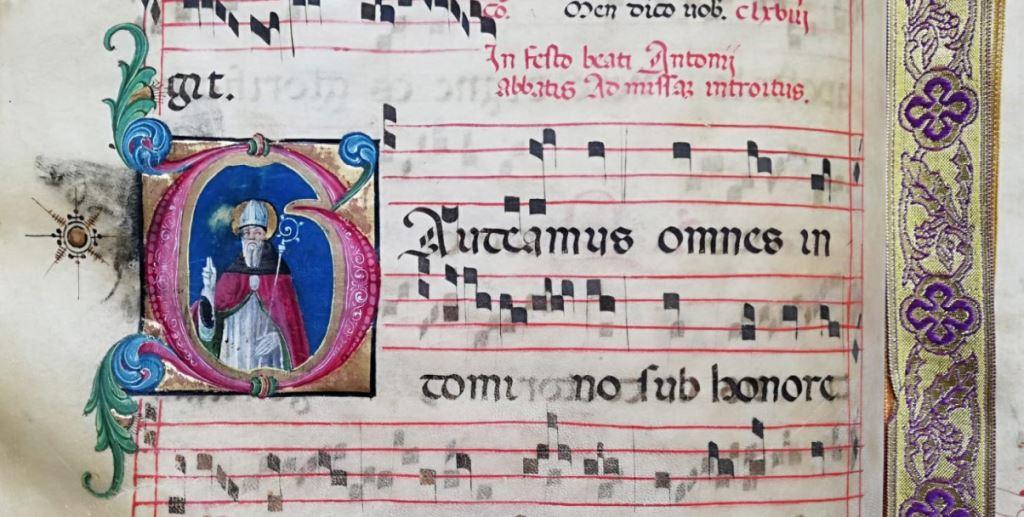 cō. Men dico uob. clxviii
git.
In festo beati Antonii
abbatis Ad missaꝫ introitus.
GAudeamus omnes in
domi no sub honore